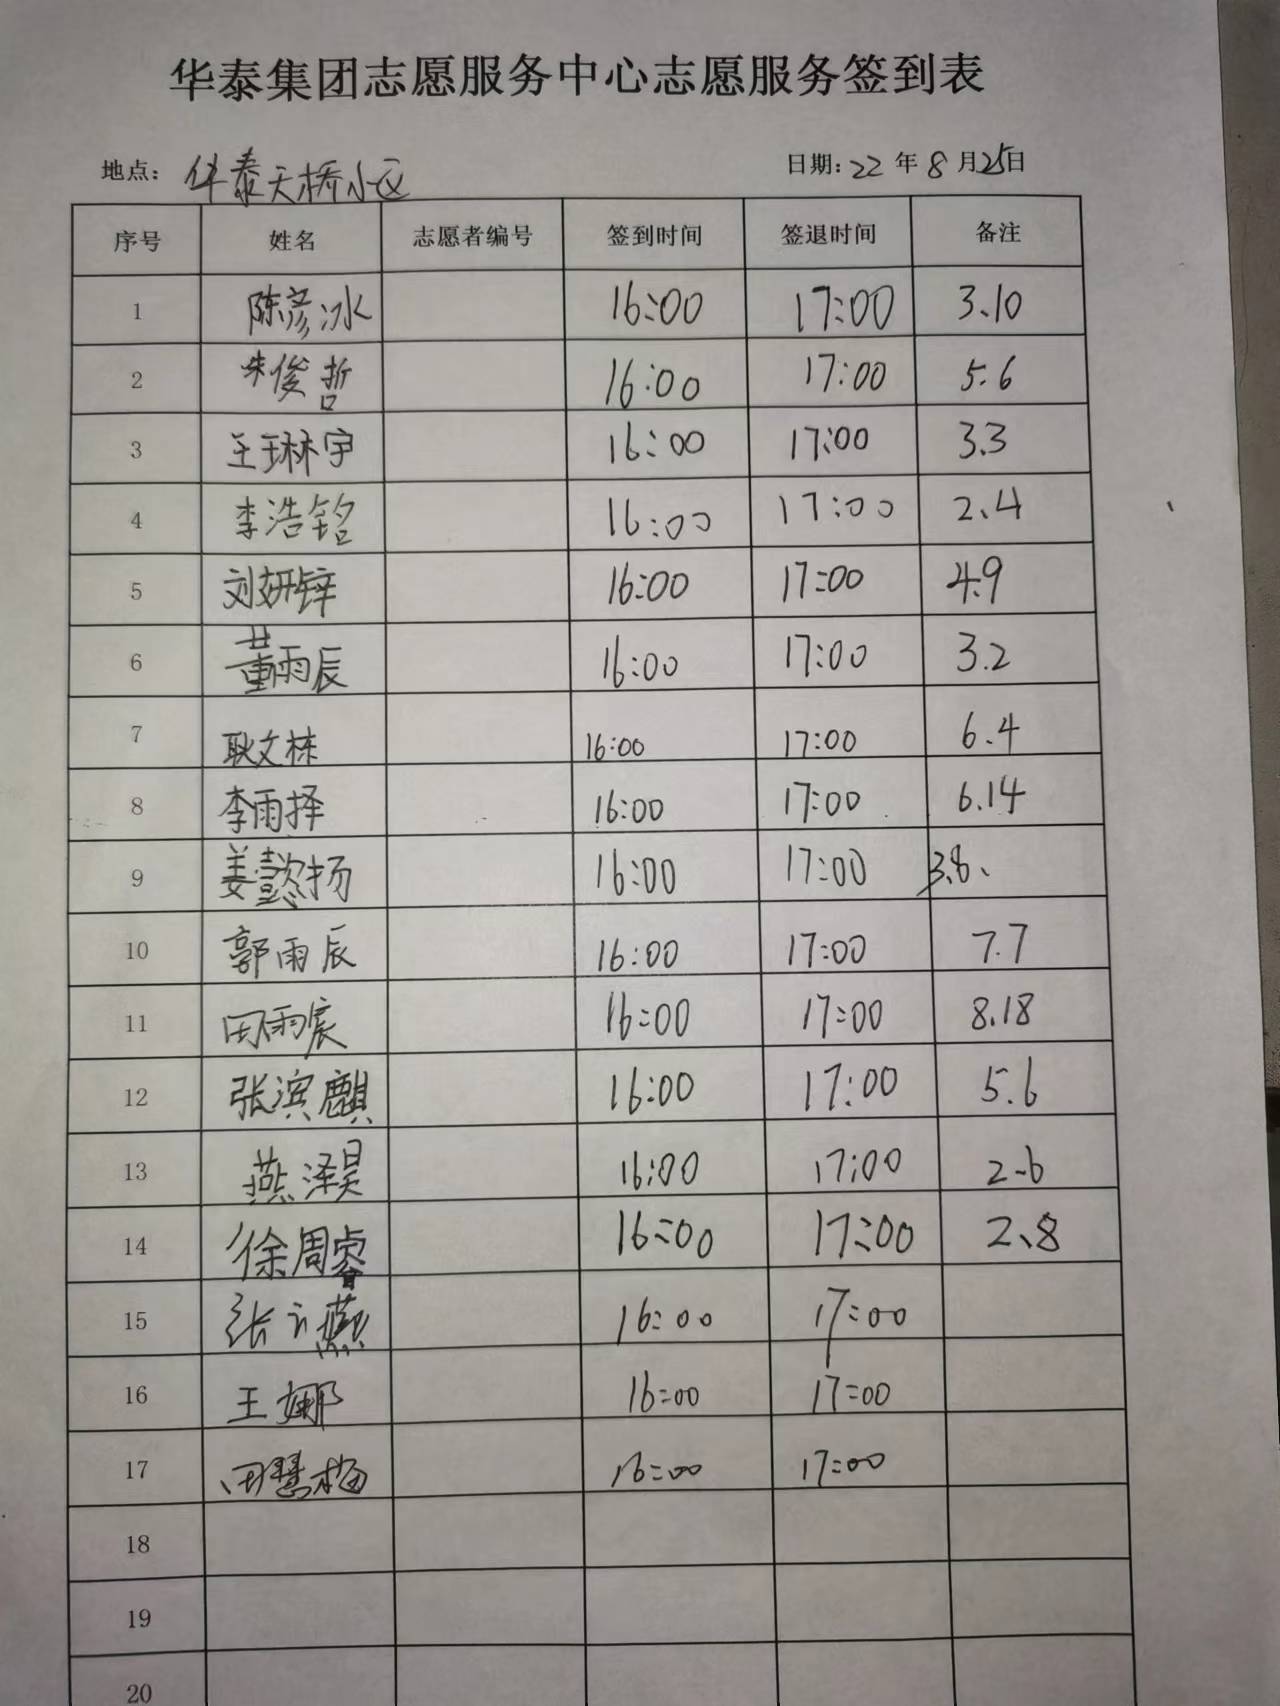 华泰集团志愿服务中心志愿服务签到表
地点：华泰天桥小区 日期：22年8月25日
序号 姓名 志愿者编号 签到时间 签退时间 备注
1 陈彦冰 16:00 17:00 3.10
2 朱俊哲 16:00 17:00 5.6
3 王琳宇 16:00 17:00 3.3
4 李浩铭 16:00 17:00 2.4
5 刘妍锌 16:00 17:00 4.9
6 董雨辰 16:00 17:00 3.2
7 耿文栋 16:00 17:00 6.4
8 李雨择 16:00 17:00 6.14
9 姜懿扬 16:00 17:00 3.8、
10 郭雨辰 16:00 17:00 7.7
11 田雨宸 16:00 17:00 8.18
12 张滨麒 16:00 17:00 5.6
13 燕泽昊 16:00 17:00 2-6
14 徐周睿 16:00 17:00 2.8
15 张 16:00 17:00
16 王娜 16:00 17:00
17 田慧梅 16:00 17:00
18
19
20